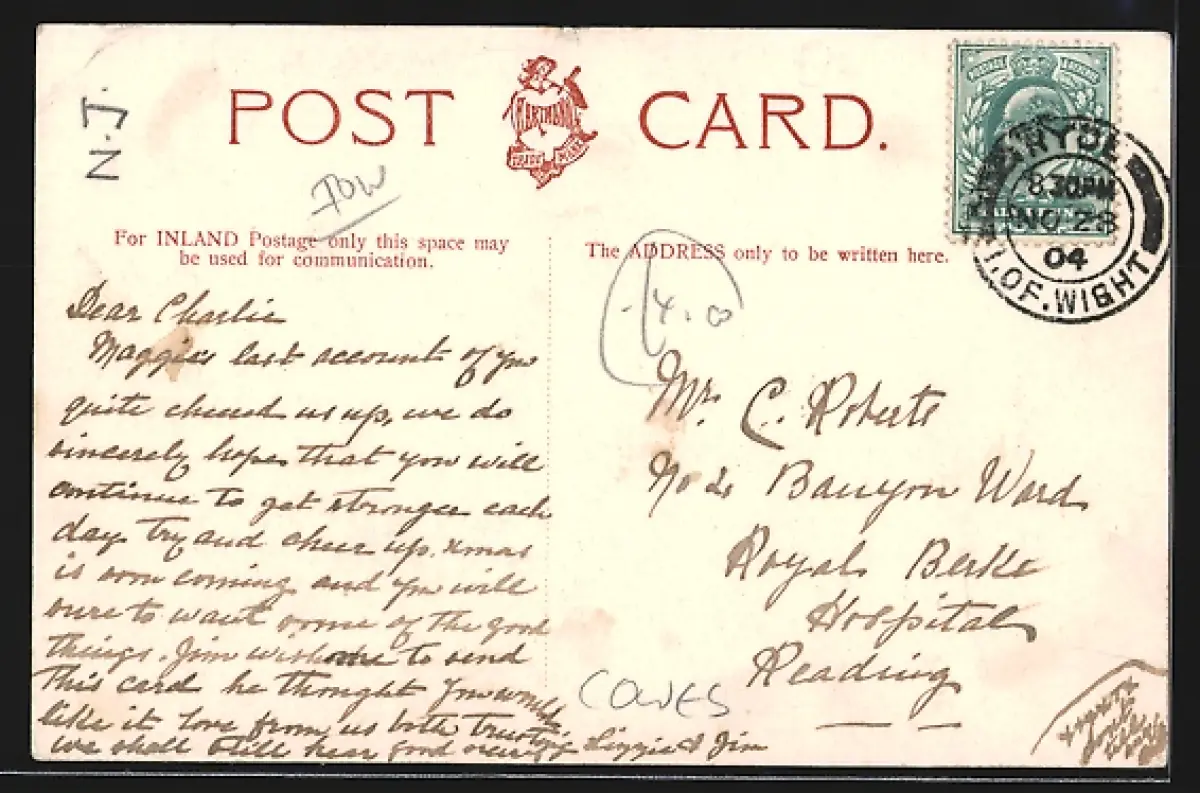 N.J.
POST CARD.
HARTMANN
TRADE MARK
For INLAND Postage only this space may
be used for communication.
The ADDRESS only to be written here.
RYDE
8.30PM
NO 28
04
I. OF. WIGHT
Dear Charlie
Maggie's last account of you
quite cheered us up, we do
sincerely hope that you will
continue to get stronger each
day try and cheer up. Xmas
is soon coming and you will
sure to want some of the good
things. Jim wishes me to send
this card he thought you would
like it love from us both trusting
we shall still hear good news of you Lizzie & Jim
Mr. C. Roberts
No 2 Ward
Royal Berks
Hospital
Reading
COWES